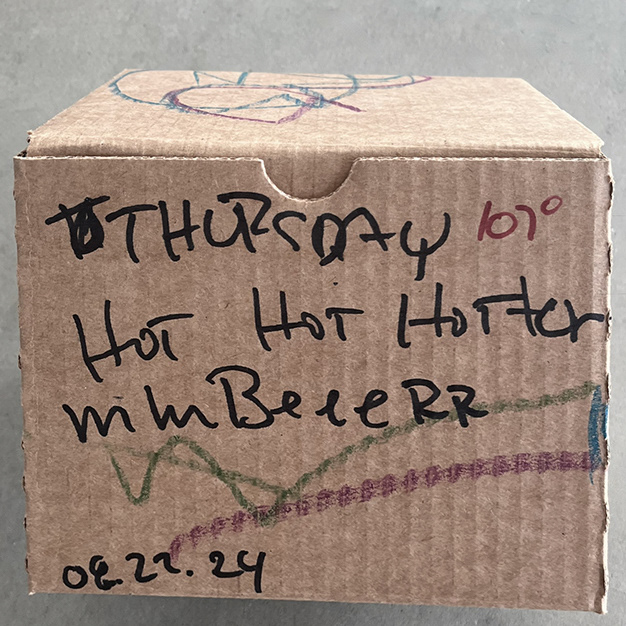 THURSDAY 107°
HOT HOT HOTTer
mmBeeeRR
08.22.24